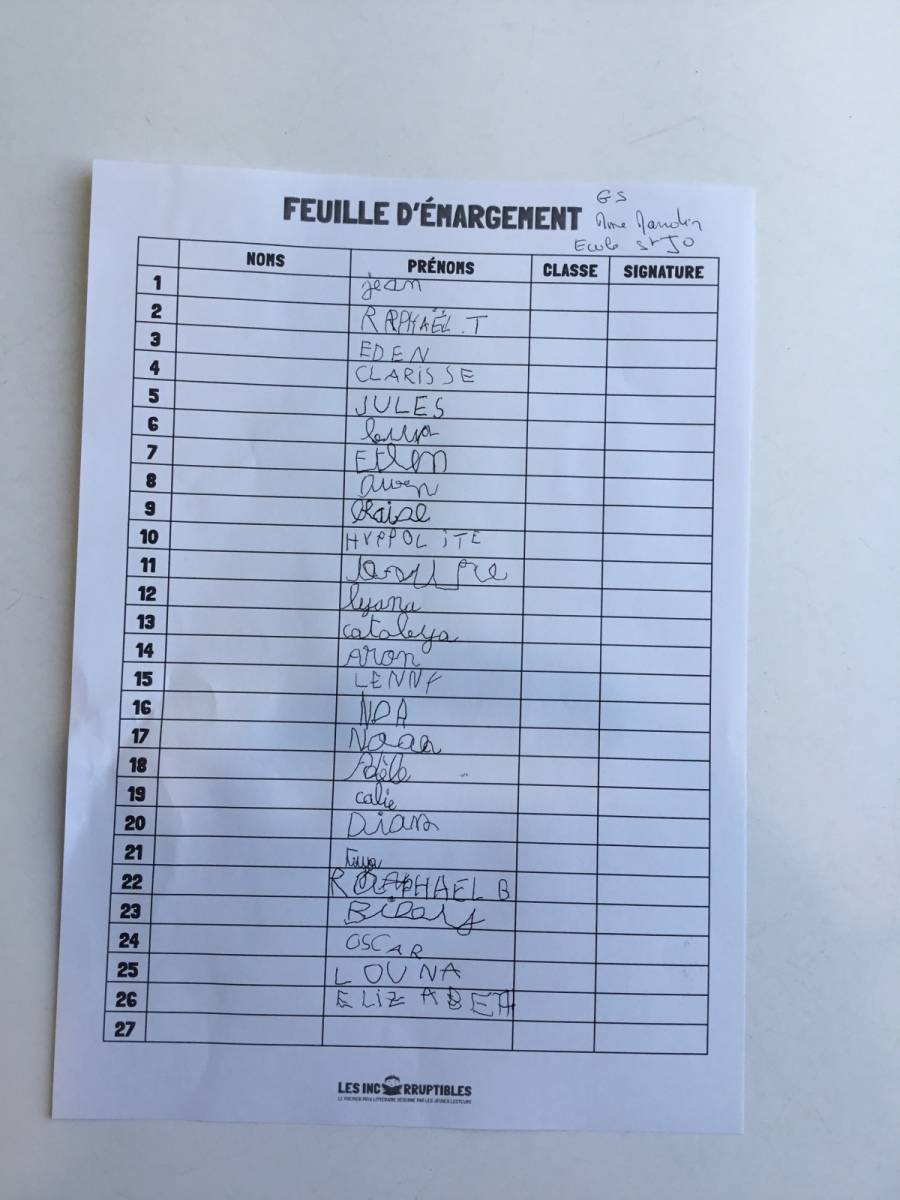 GS
FEUILLE D'ÉMARGEMENT
Mme
Ecole St Jo
NOMS PRÉNOMS CLASSE SIGNATURE
1 jean
2 RAPHAËL.T
3 EDEN
4 CLARISSE
5 JULES
6
7
8 awen
9 Blaise
10 HYPPOLITE
11
12 lyana
13 cataleya
14 Aron
15 LENNY
16 NOA
17
18 Adèle
19 calie
20
21
22 RAPHAEL B
23
24 OSCAR
25 LOUNA
26 ELIZABETH
27
LES INCORRUPTIBLES
LE PREMIER PRIX LITTÉRAIRE DÉCERNÉ PAR LES JEUNES LECTEURS